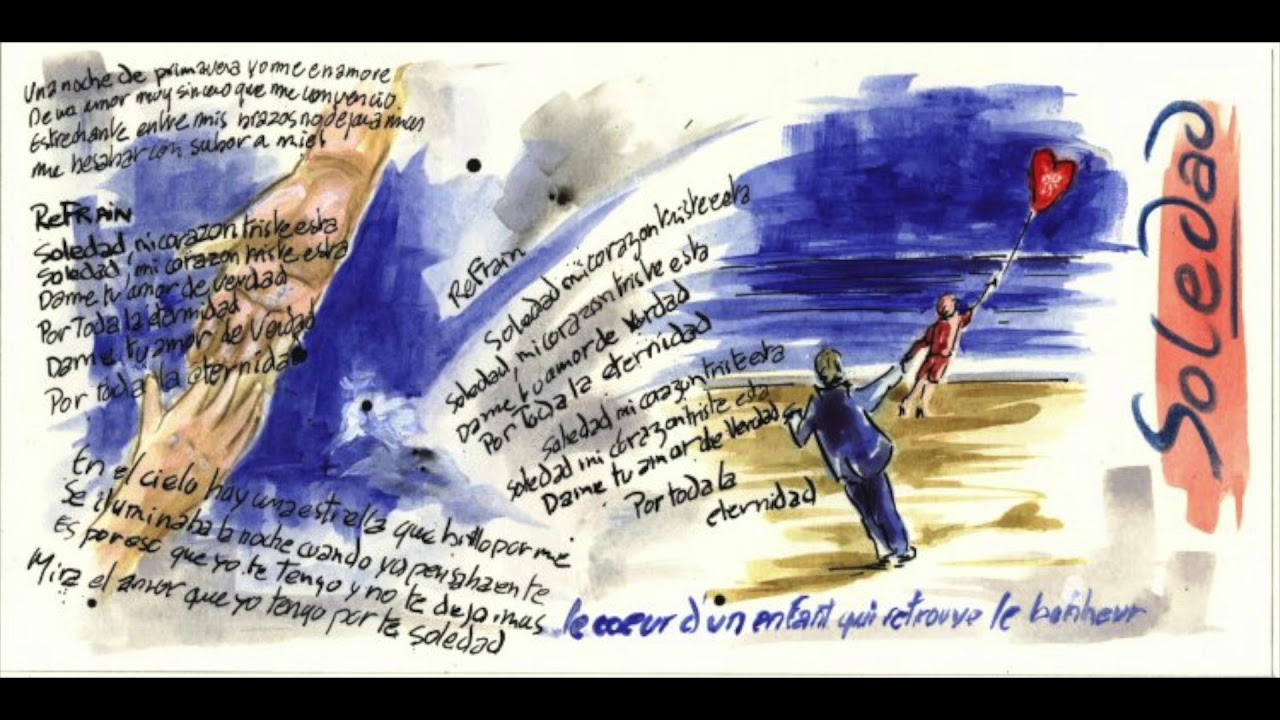 Una noche de primavera yo me enamore
De un amor muy sincero que me convencio
Estrechante entre mis brazos no dejara
me besabar con sabor a miel
ReFRAIN
Soledad, mi corazon triste esta
Soledad, mi corazon triste esta
Dame tu amor de verdad
Por Toda la eternidad
Dame tu amor de Verdad
Por toda la eternidad
En el cielo hay una estrella que brillo por me
Se iluminaba la noche cuando yo pensaba en te
Es por eso que yo te Tengo y no te dejo mas
Mira el amor que yo tengo por te soledad
ReFrain
Soledad mi corazon triste esta
Soledad, mi corazon triste esta
Dame tu amor de Verdad
Por Toda la eternidad
Soledad mi corazon triste esta
Soledad mi corazon triste esta
Dame tu amor de Verdad
Por toda la
eternidad
le coeur d'un enfant qui retrouve le bonheur
Soledad